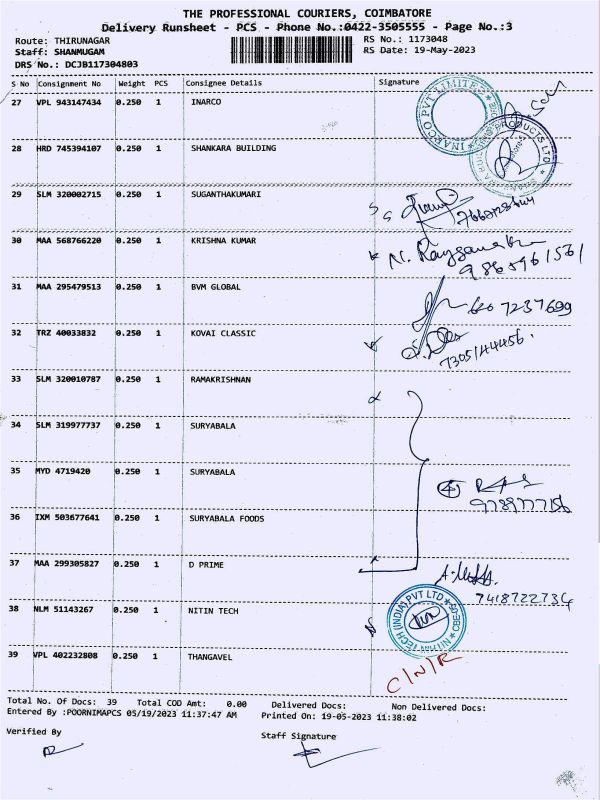 THE PROFESSIONAL COURIERS, COIMBATORE
Delivery Runsheet - PCS - Phone No.:0422-3505555 - Page No.:3
Route: THIRUNAGAR RS No.: 1173048
Staff: SHANMUGAM RS Date: 19-May-2023
DRS No.: DCJB117304803
S No Consignment No Weight PCS Consignee Details Signature
27 VPL 943147434 0.250 1 INARCO
INARCO PVT LIMITED
28 HRD 745394107 0.250 1 SHANKARA BUILDING
PRODUCTS LTD
29 SLM 320002715 0.250 1 SUGANTHAKUMARI
30 MAA 568766220 0.250 1 KRISHNA KUMAR
9865961561
31 MAA 295479513 0.250 1 BVM GLOBAL
620 7237699
32 TRZ 40033832 0.250 1 KOVAI CLASSIC
7305144456.
33 SLM 320010787 0.250 1 RAMAKRISHNAN
34 SLM 319977737 0.250 1 SURYABALA
35 MYD 4719420 0.250 1 SURYABALA
4
36 IXM 503677641 0.250 1 SURYABALA FOODS
37 MAA 299305827 0.250 1 D PRIME
7418722734
38 NLM 51143267 0.250 1 NITIN TECH
TECH (INDIA) PVT LTD
39 VPL 402232808 0.250 1 THANGAVEL
C/N/R
Total No. Of Docs: 39 Total COD Amt: 0.00 Delivered Docs: Non Delivered Docs:
Entered By :POORNIMAPCS 05/19/2023 11:37:47 AM Printed On: 19-05-2023 11:38:02
Verified By Staff Signature